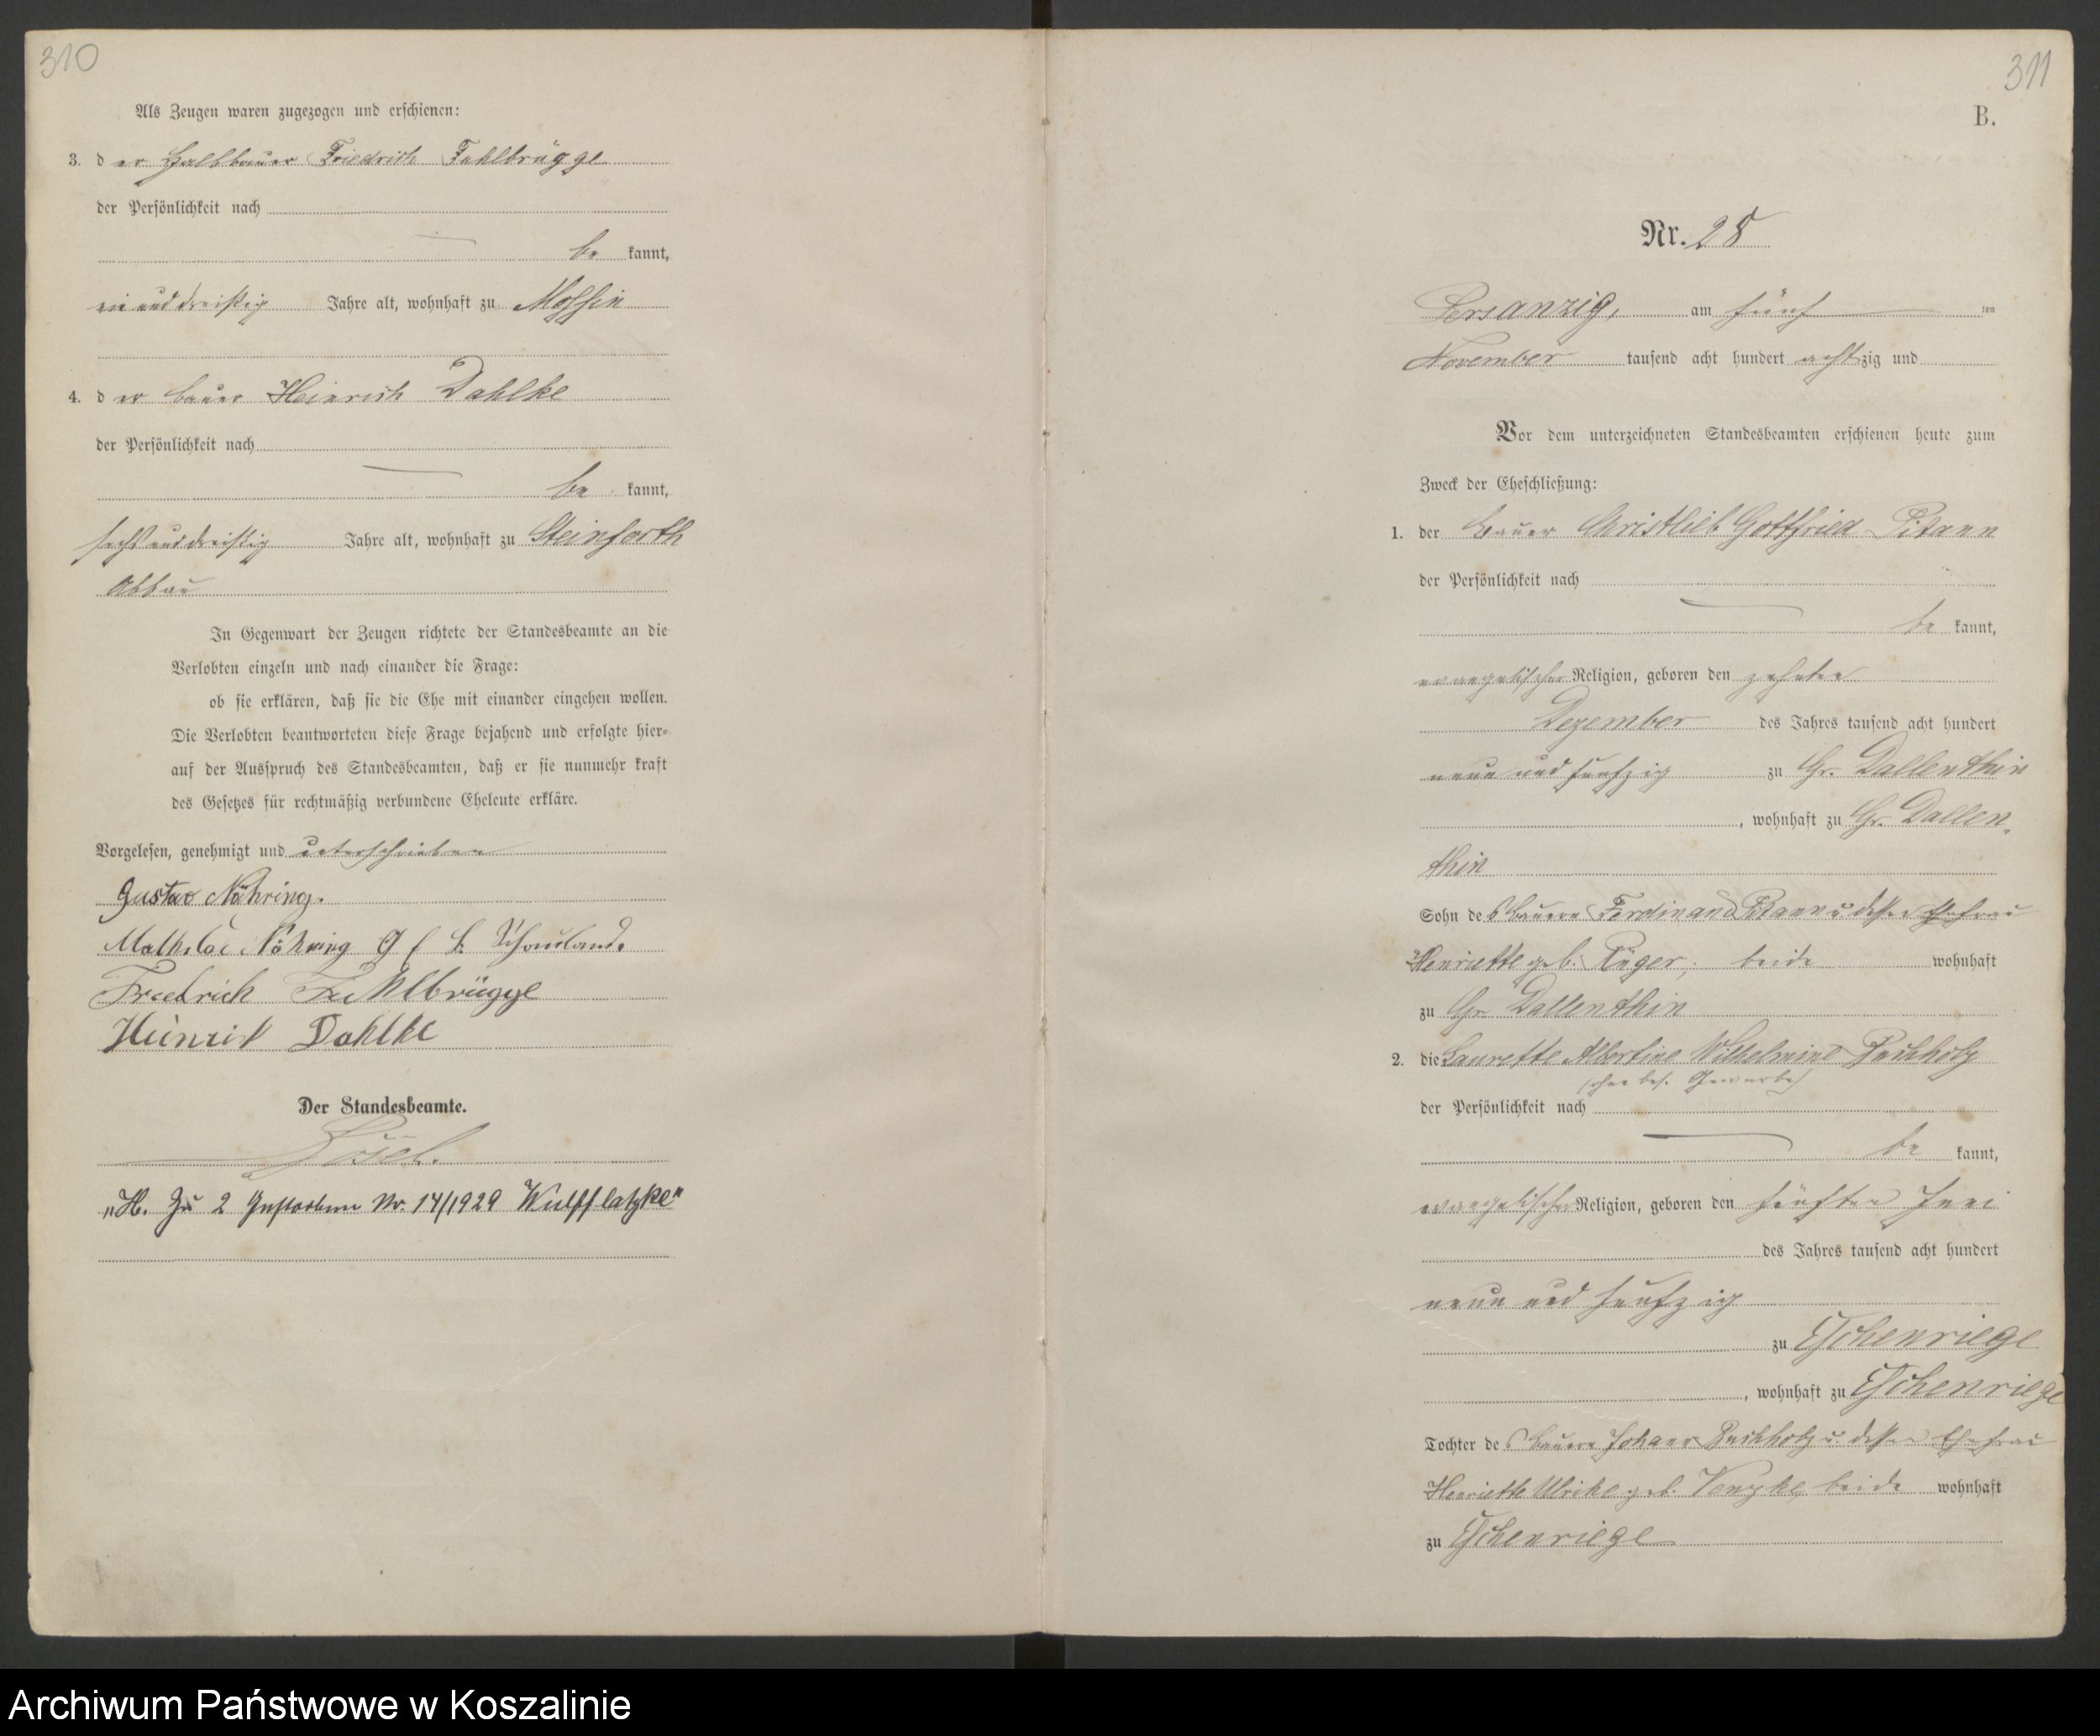 310
Als Zeugen waren zugezogen und erschienen:
3. der Halbbauer Friedrich Fahlbrügge
der Persönlichkeit nach
be kannt,
und dreißig Jahre alt, wohnhaft zu Mossin
4. der Bauer Heinrich Dahlke
der Persönlichkeit nach
be kannt,
sechs und dreißig Jahre alt, wohnhaft zu Steinforth
Abbau
In Gegenwart der Zeugen richtete der Standesbeamte an die
Verlobten einzeln und nach einander die Frage:
ob sie erklären, daß sie die Ehe mit einander eingehen wollen.
Die Verlobten beantworteten diese Frage bejahend und erfolgte hier-
auf der Ausspruch des Standesbeamten, daß er sie nunmehr kraft
des Gesetzes für rechtmäßig verbundene Eheleute erkläre.
Vorgelesen, genehmigt und unterschrieben
Gustav Nöhring.
Mathilde Nöhring geb. Schauland.
Friedrich Fahlbrügge
Heinrich Dahlke
Der Standesbeamte.
"H. Zu 2 Gestorben Nr. 14/1929 Wulfflatzke"
311
B.
Nr. 28
Persanzig, am fünf ten
November tausend acht hundert achtzig und
Vor dem unterzeichneten Standesbeamten erschienen heute zum
Zweck der Eheschließung:
1. der Bauer Christlieb Gottfried Pitann
der Persönlichkeit nach
be kannt,
evangelischer Religion, geboren den zehnten
Dezember des Jahres tausend acht hundert
neun und fünfzig zu Gr. Dallenthin
, wohnhaft zu Gr. Dallen-
thin
Sohn des Bauern Ferdinand Pitann u. dessen Ehefrau
Henriette geb. Krüger, beide wohnhaft
zu Gr. Dallenthin
2. die Laurette Albertine Wilhelmine Buchholz
(ohne bes. Gewerbe)
der Persönlichkeit nach
be kannt,
evangelischer Religion, geboren den fünften Juni
des Jahres tausend acht hundert
neun und fünfzig
zu Eschenriege
, wohnhaft zu Eschenriege
Tochter des Bauern Johann Buchholz u. dessen Ehefrau
Henriette Ulrike geb. Venzke beide wohnhaft
zu Eschenriege
Archiwum Państwowe w Koszalinie